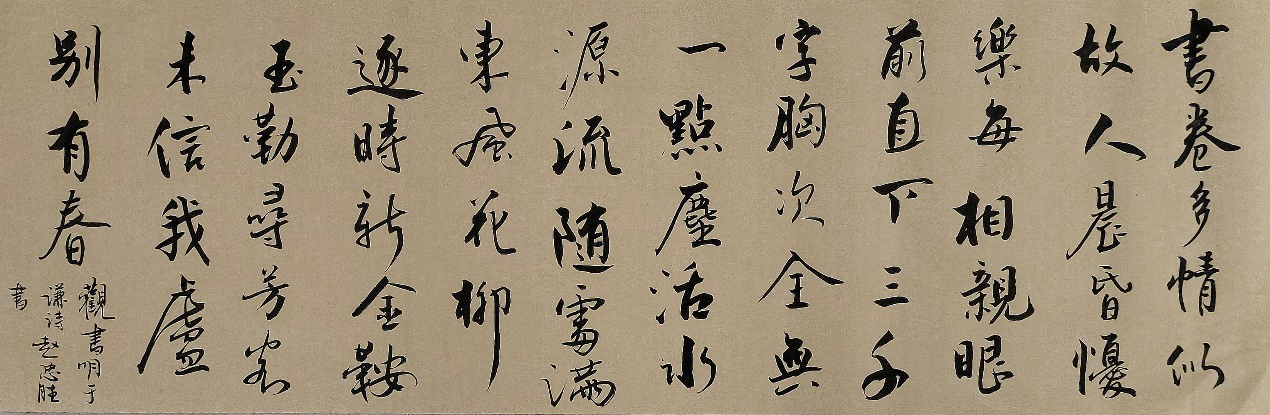 書卷多情似
故人晨昏懮
樂每相親眼
前直下三千
字胸次全無
一點塵活水
源流随處滿
東風花柳
逐時新金鞍
玉勒尋芳客
未信我盧
別有春
觀書明于
谦诗赵忠胜
書